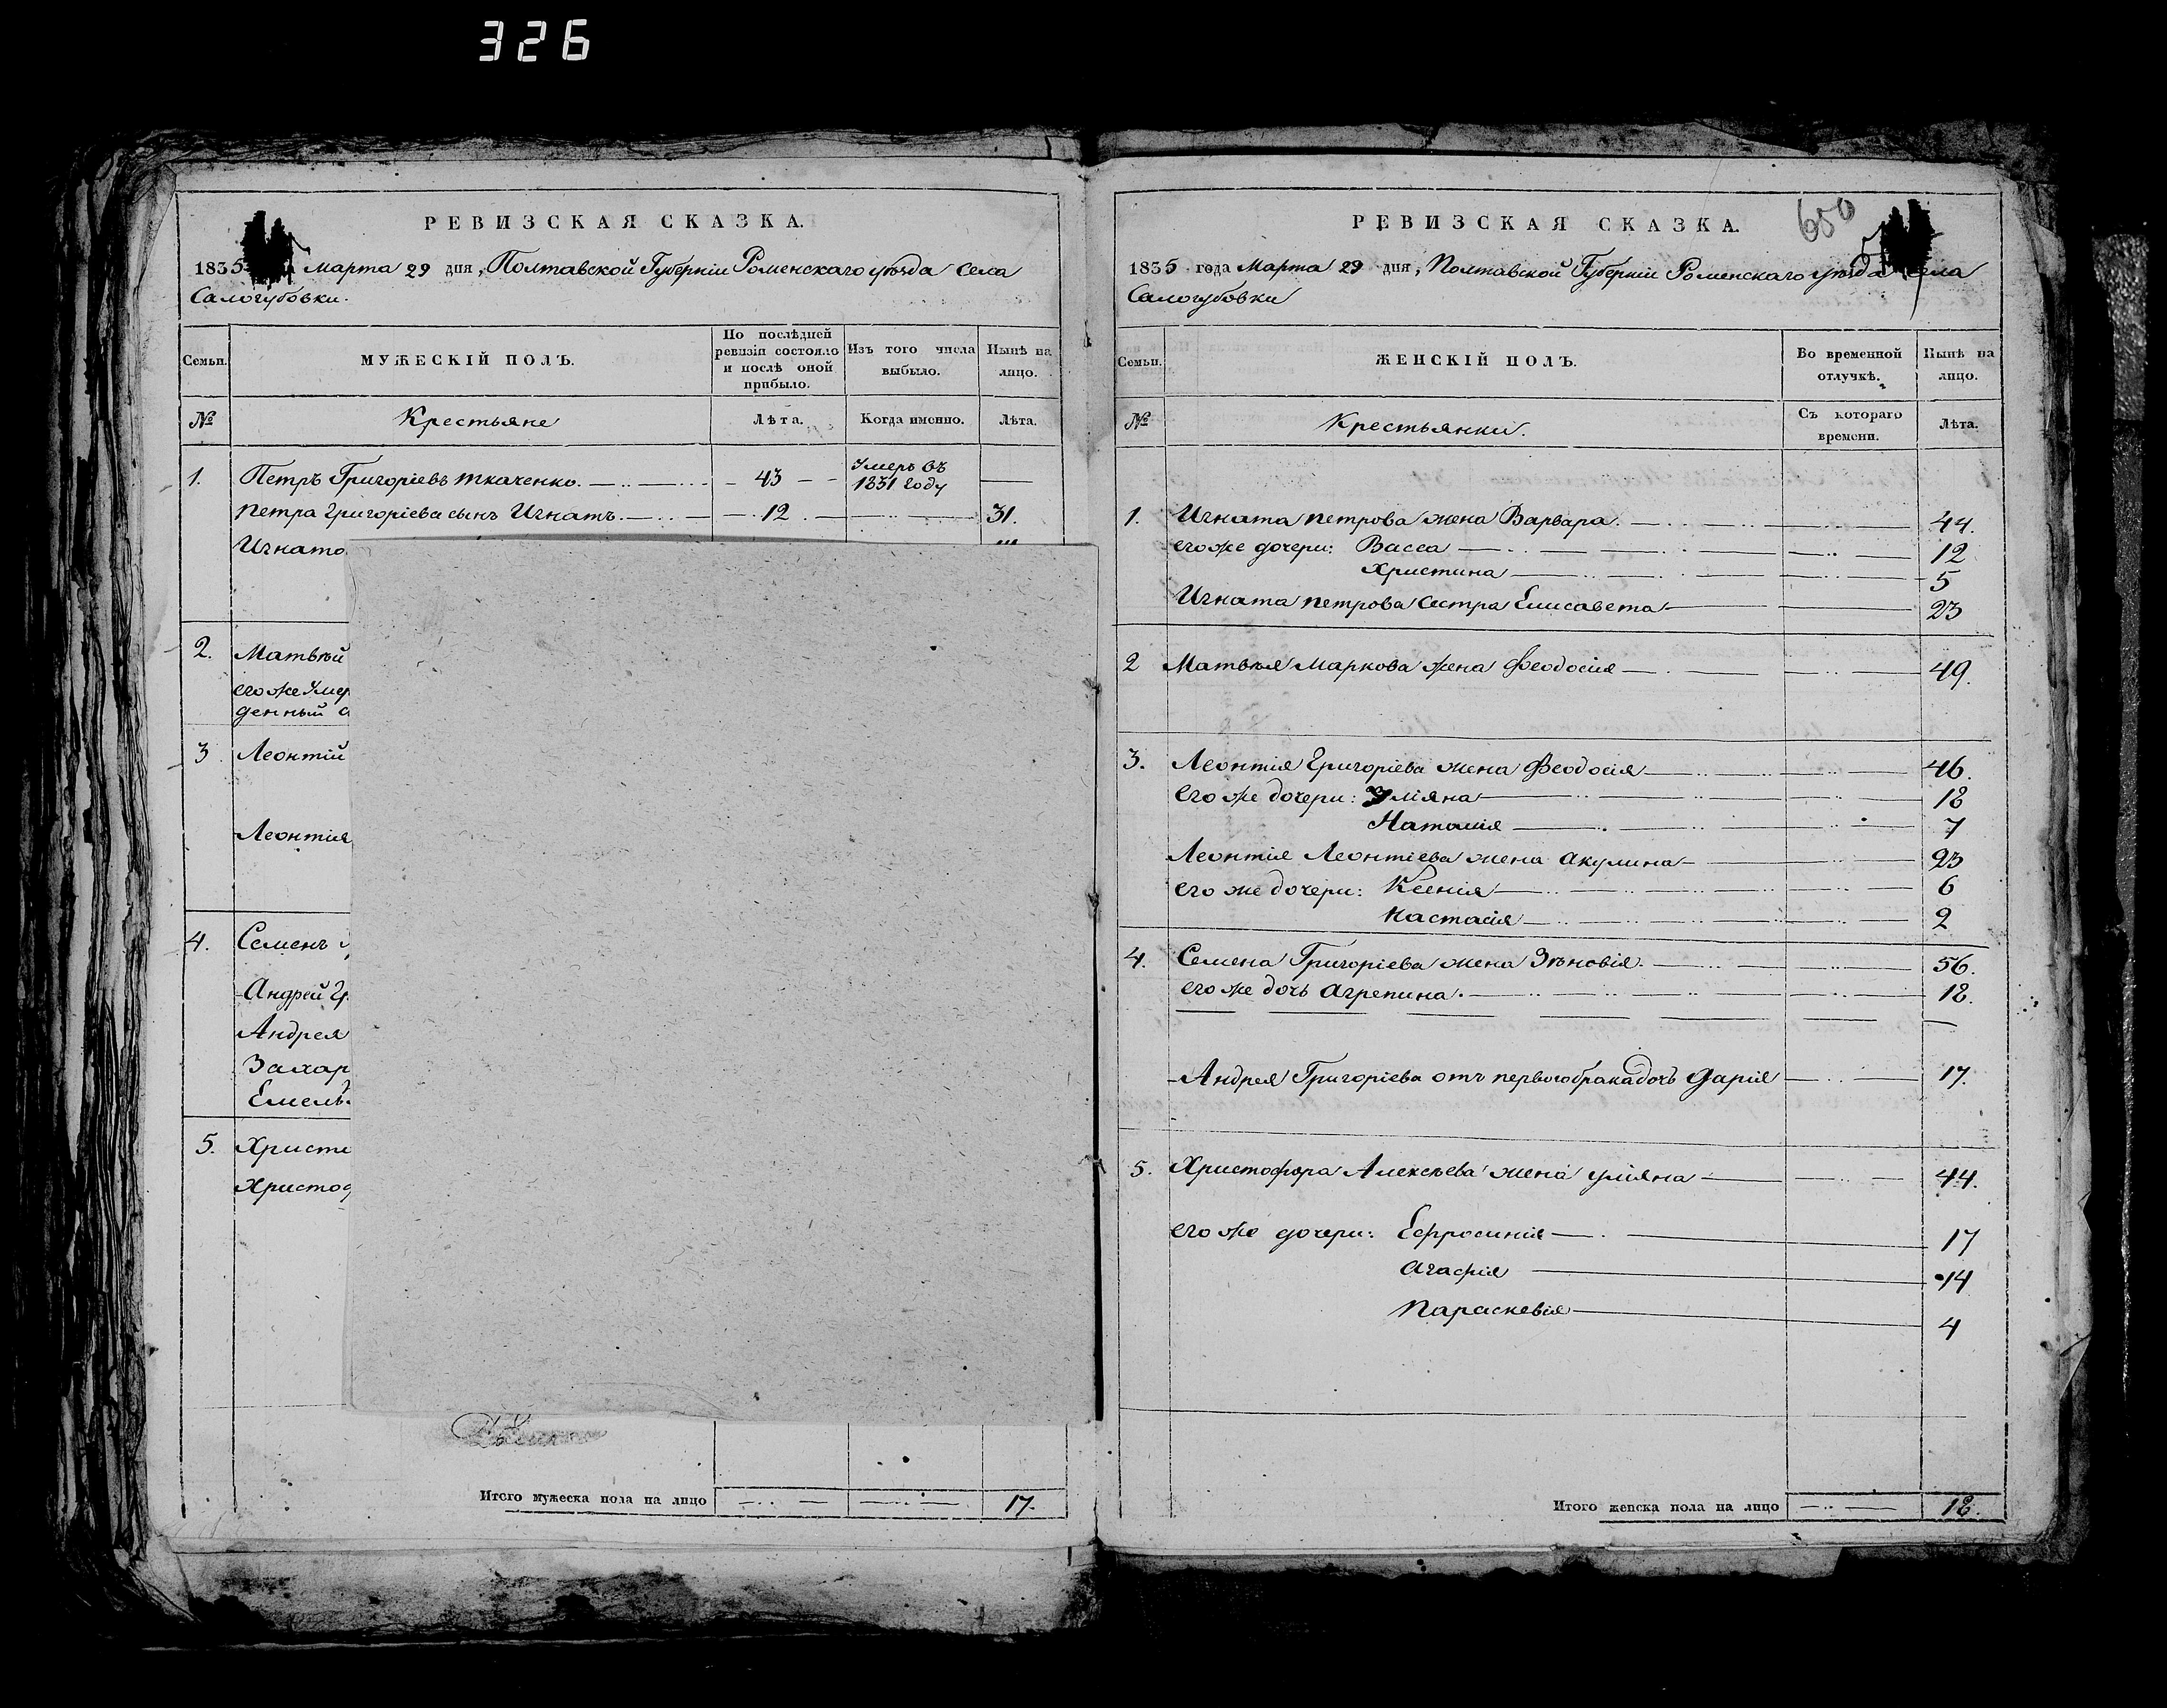 326
РЕВИЗСКАЯ СКАЗКА.
1835 Марта 29 дня, Полтавской Губерніи Роменскаго уѣзда Села
Салогубовки.
Семьи. МУЖЕСКІЙ ПОЛЪ. По послѣдней ревизіи состояло и послѣ оной прибыло. Изъ того числа выбыло. Нынѣ на лицо.
№ Крестьяне Лѣта. Когда именно. Лѣта.
1. Петръ Григоріевъ Ткаченко. 43 Умеръ въ 1831 году
Петра Григоріева сынъ Игнатъ. 12 31.
Игнато
2. Матвѣй
его же Умер
денный с
3 Леонтій
Леонтія
4. Семенъ
Андрей Гр
Андрея
Захар
Емель
5. Христо
Христоф
Итого мужеска пола на лицо 17.
650
РЕВИЗСКАЯ СКАЗКА.
1835 года Марта 29 дня, Полтавской Губерніи Роменскаго уѣзда Села
Салогубовки
Семьи. ЖЕНСКІЙ ПОЛЪ. Во временной отлучкѣ. Нынѣ на лицо.
№ Крестьянки. Съ котораго времени. Лѣта.
1. Игната Петрова жена Варвара. 44.
его же дочери: Васса 12
Христина 5
Игната Петрова сестра Елисавета 23
2 Матвѣя Маркова жена Феодосія 49.
3. Леонтія Григоріева жена Феодосія 46.
его же дочери: Уліяна 18
Наталія 7
Леонтія Леонтіева жена Акулина 23
его же дочери: Ксенія 6
Настасія 2
4. Семена Григоріева жена Зѣновія. 56.
его же дочь Агрепина. 18.
Андрея Григоріева отъ первого брака дочь Дарія 17.
5. Христофора Алексѣева жена Уліяна 44.
его же дочери: Ефросинія 17
Агафія 14
Параскевія 4
Итого женска пола на лицо 18.